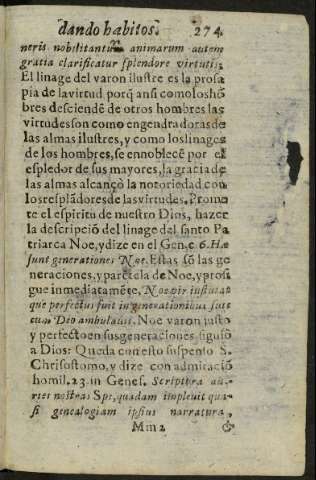 dando habitos. 274
neris nobilitantur animarum autem
gratia clarificatur splendore virtutis.
El linage del varon ilustre es la prosa
pia de la virtud porq̃ ansi como los hõ
bres desciendẽ de otros hombres las
virtudes son como engendradoras de
las almas ilustres, y como los linages
de los hombres, se ennoblecẽ por el
espledor de sus mayores, la gracia de
las almas alcançò la notoriedad con
los resplãdores de las virtudes. Prome
te el espiritu de nuestro Dios, hazer
la descripciõ del linage del santo Pa
triarca Noe, y dize en el Gen. c 6. Hæ
sunt generationes Noe. Estas sõ las ge
neraciones, y parẽtela de Noe, y prosi
gue inmediatamẽte, Noe vir iustus at
que perfectus fuit in generationibus suis
cum Deo ambulauit. Noe varon justo
y perfecto en sus generaciones siguiò
a Dios: Queda con esto suspenso S.
Chrisostomo, y dize con admiraciõ
homil. 23. in Genes. Scriptura au-
ries nostras Spe, quadam impleuit qua-
si genealogiam ipsius narratura,
Mm 2 &